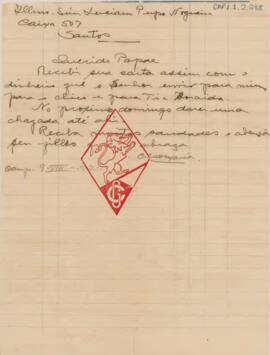 CMP1.1.2.248
Illmo. Snr. Luciano Pupo Nogueira
Caixa 507
Santos
Querido Papae
Recebi sua carta assim com o
dinheiro que o Senhor enviou para mim
para o e para Tia
No proximo domingo darei uma
chegada até ahi
Receba muitas saudades e abraços
seu filho que abraça
Camp. 9 VIII